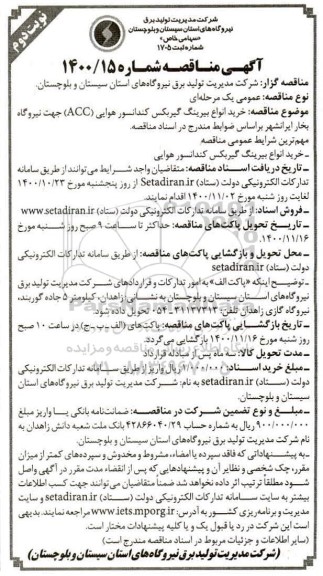 نوبت دوم
شرکت مدیریت تولید برق
نیروگاه‌های استان سیستان و بلوچستان
«سهامی خاص»
شماره ثبت ۱۷۰۵
آگهی مناقصه شماره ۱۴۰۰/۱۵
مناقصه گزار: شرکت مدیریت تولید برق نیروگاه‌های استان سیستان و بلوچستان.
نوع مناقصه: عمومی یک مرحله‌ای
موضوع مناقصه: خرید انواع بیرینگ گیربکس کندانسور هوایی (ACC) جهت نیروگاه
بخار ایرانشهر براساس ضوابط مندرج در اسناد مناقصه.
مهم‌ترین شرایط عمومی مناقصه
ـ خرید انواع بیرینگ گیربکس کندانسور هوایی
ـ تاریخ دریافت اسناد مناقصه: متقاضیان واجد شرایط می‌توانند از طریق سامانه
تدارکات الکترونیکی دولت (ستاد) Setadiran.ir از روز پنجشنبه مورخ ۱۴۰۰/۱۰/۲۳
لغایت روز شنبه مورخ ۱۴۰۰/۱۱/۰۲ اقدام نمایند.
ـ فروش اسناد: از طریق سامانه تدارکات الکترونیکی دولت (ستاد) www.setadiran.ir
ـ تاریخ تحویل پاکت‌های مناقصه: حداکثر تا ساعت ۹ صبح روز شنبه مورخ
۱۴۰۰/۱۱/۱۶.
ـ محل تحویل و بازگشایی پاکت‌های مناقصه: از طریق سامانه تدارکات الکترونیکی
دولت (ستاد) setadiran.ir
ـ توضیح اینکه «پاکت الف» به امور تدارکات و قراردادهای شرکت مدیریت تولید برق
نیروگاه‌های استان سیستان و بلوچستان به نشانی زاهدان- کیلومتر ۵ جاده گوربند،
نیروگاه گازی زاهدان تلفن: ۳۱۱۳۷۳۱۳-۰۵۴ تحویل داده شود.
ـ تاریخ بازگشایی پاکت‌های مناقصه: پاکت‌های (الف-ب-ج) در ساعت ۱۰ صبح
روز شنبه مورخ ۱۴۰۰/۱۱/۱۶ بازگشایی می‌گردد.
ـ مدت تحویل کالا: سه ماه پس از مبادله قرارداد
ـ مبلغ خرید اسناد: ۱/۰۰۰/۰۰۰ ریال واریز از طریق سامانه تدارکات الکترونیکی
دولت (ستاد) setadiran.ir به نام: شرکت مدیریت تولید برق نیروگاه‌های استان
سیستان و بلوچستان.
ـ مبلغ و نوع تضمین شرکت در مناقصه: ضمانت‌نامه بانکی یا واریز مبلغ
۹۰۰/۰۰۰/۰۰۰ ریال به شماره حساب ۴۲۸۶۶۰۴۰/۲۹ بانک ملت شعبه دانش زاهدان به
نام شرکت مدیریت تولید برق نیروگاه‌های استان سیستان و بلوچستان.
ـ به پیشنهاداتی که فاقد سپرده یا امضاء، مشروط و مخدوش و سپرده‌های کمتر از میزان
مقرر، چک شخصی و نظایر آن و پیشنهادهایی که پس از انقضاء مدت مقرر در آگهی واصل
شود مطلقا ترتیب اثر داده نخواهد شد ضمنا متقاضیان می‌توانند جهت کسب اطلاعات
بیشتر به سایت سامانه تدارکات الکترونیکی دولت (ستاد) setadiran.ir و سایت
مدیریت و برنامه‌ریزی کشور به آدرس: www.iets.mporg.ir مراجعه نمایند. بدیهی
است این شرکت در رد یا قبول یک و یا کلیه پیشنهادات مختار است.
(سایر اطلاعات و جزئیات مربوط در اسناد مناقصه مندرج است)
(شرکت مدیریت تولید برق نیروگاه‌های استان سیستان و بلوچستان)